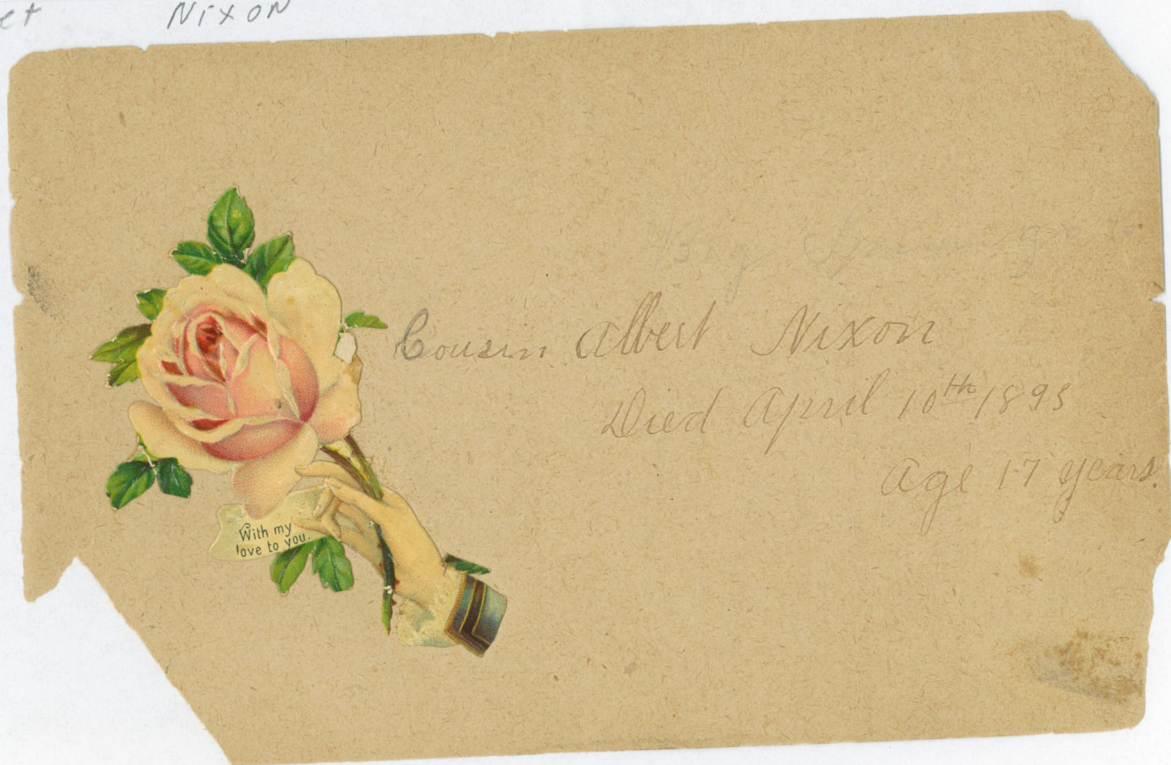 Nixon
Cousin Albert Nixon
Died April 10th 1893
Age 17 years.
With my
love to you.